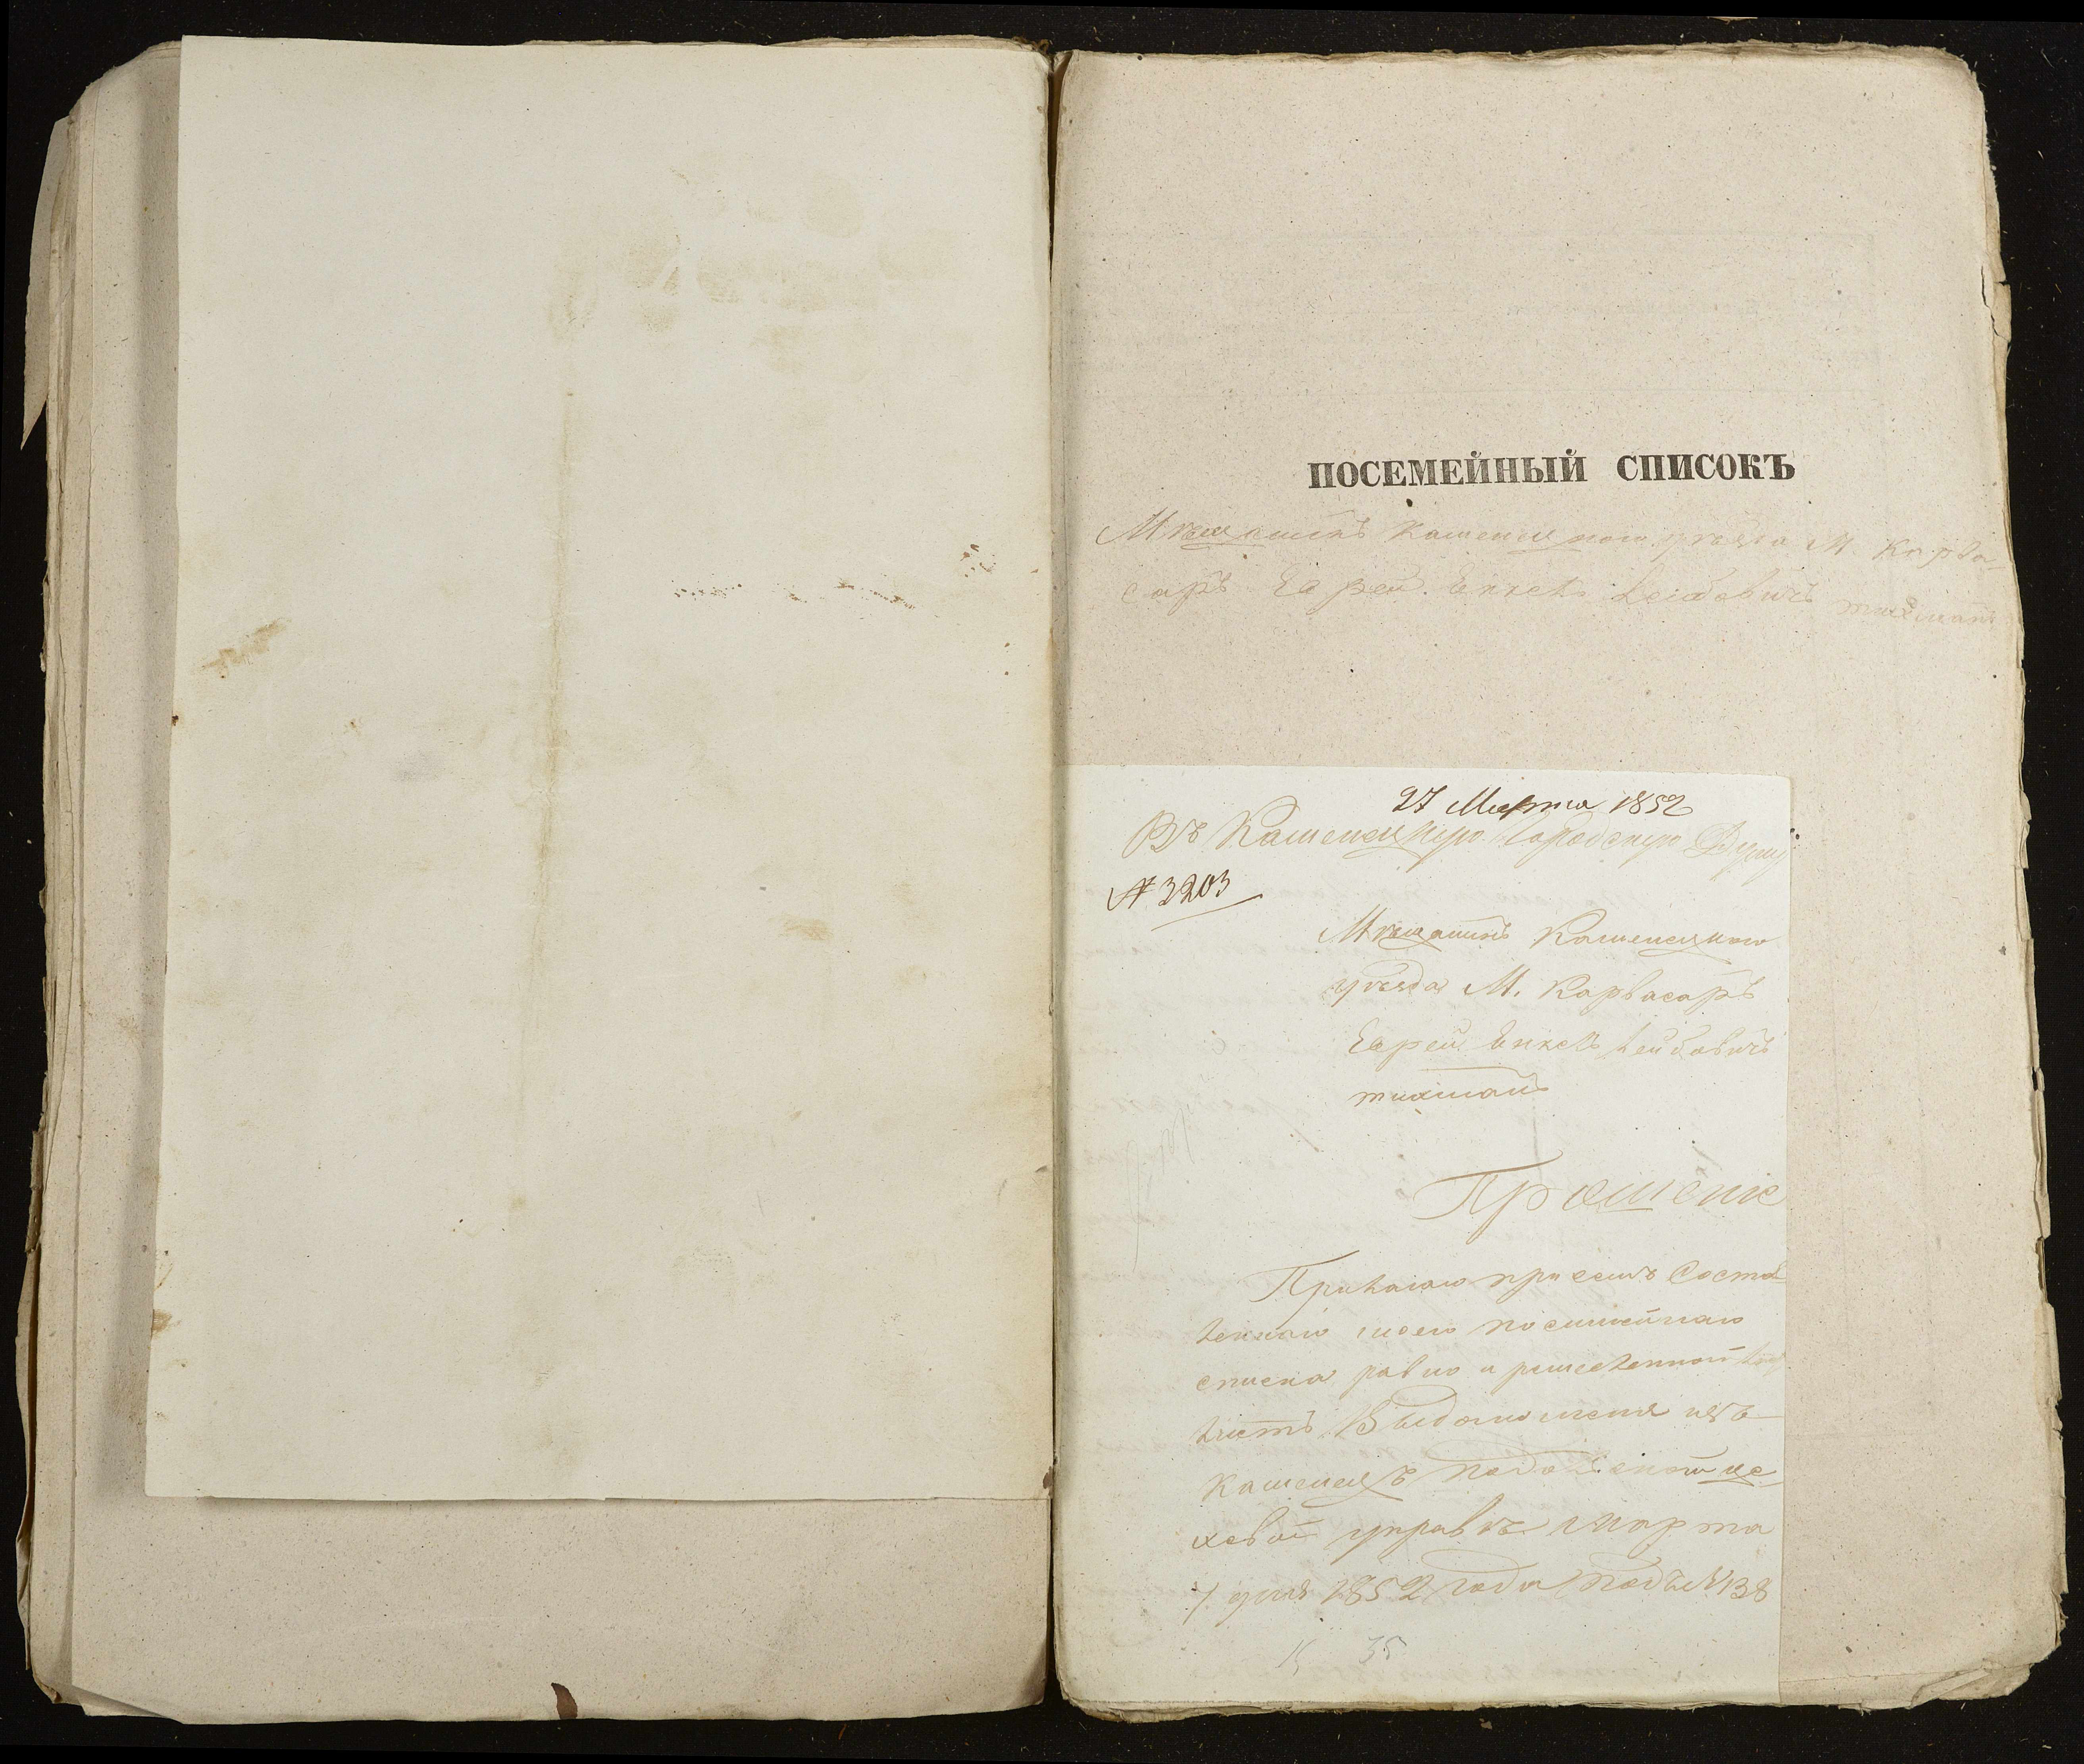 ПОСЕМЕЙНЫЙ СПИСОКЪ
Мѣщанинъ Каменецкого уѣзда М Карва-
саръ Еврей Енкель Лейбовичъ тихманъ
27 Марта 1852
Въ Каменецкую Городскую Думу
№ 3203
Мѣщанинъ Каменецкого
уѣзда М. Карвасаръ
Еврей Енкель Лейбовичъ
тихманъ
Прошение
Прилагаю при семъ Соста
леннаго моего посимейнаго
списка равно и ремесленной
листъ Выдан изъ
Каменецъ Подольской це-
ховой управѣ марта
7 дня 1852 года подъ № 138
35